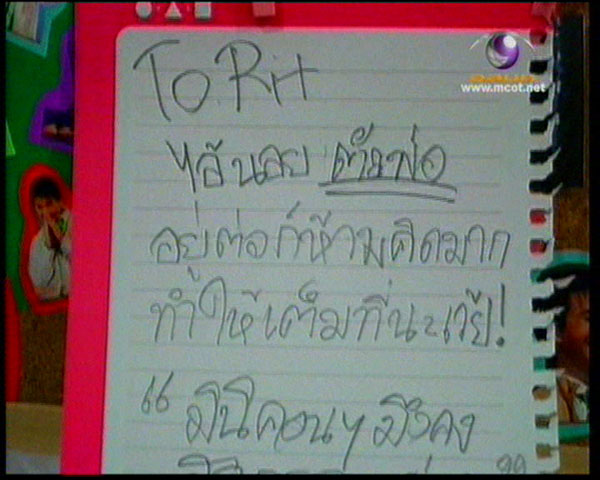 www.mcot.net
To Rit
ไอ้นอย ตัวพ่อ
อยู่ต่อก็ห้ามคิดมาก
ทำให้เต็มที่นะเว้ย!
“ มีนีคอนๆ มึงคง